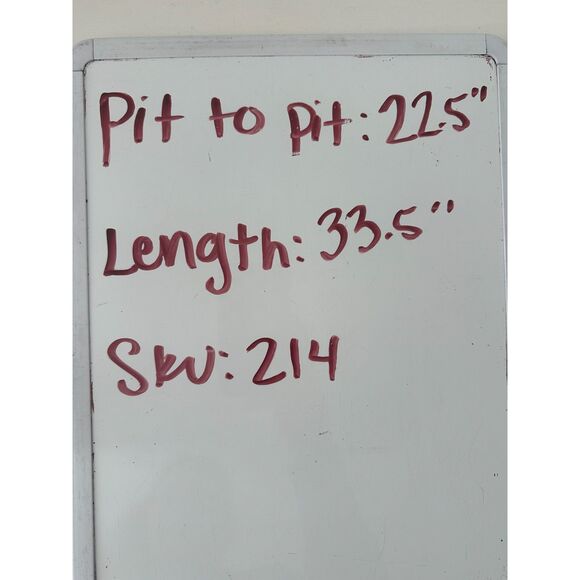 Pit to pit: 22.5"
Length: 33.5"
Sku: 214